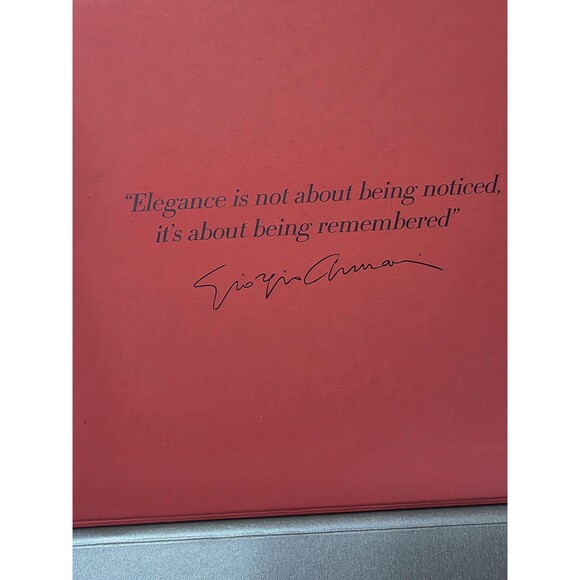 “Elegance is not about being noticed,
it’s about being remembered”
Giorgio Armani